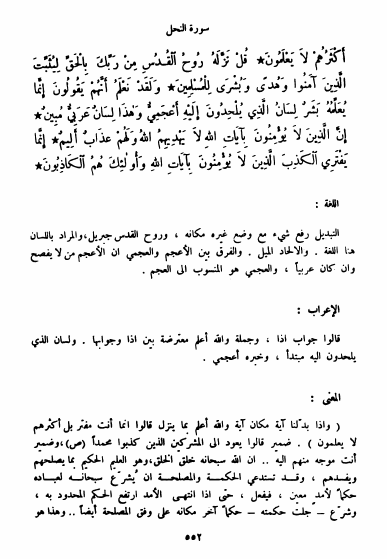 سورة النحل
أَكْثَرُهُمْ لاَ يَعْلَمُونَ * قُلْ نَزَّلَهُ رُوحُ الْقُدُسِ مِنْ رَبِّكَ بِالْحَقِّ لِيُثَبِّتَ
الَّذِينَ آمَنُوا وَهُدًى وَبُشْرَى لِلْمُسْلِمِينَ * وَلَقَدْ نَعْلَمُ أَنَّهُمْ يَقُولُونَ إِنَّمَا
يُعَلِّمُهُ بَشَرٌ لِسَانُ الَّذِي يُلْحِدُونَ إِلَيْهِ أَعْجَمِيٌّ وَهَذَا لِسَانٌ عَرَبِيٌّ مُبِينٌ *
إِنَّ الَّذِينَ لاَ يُؤْمِنُونَ بِآيَاتِ اللهِ لاَ يَهْدِيهِمُ اللهُ وَلَهُمْ عَذَابٌ أَلِيمٌ * إِنَّمَا
يَفْتَرِي الْكَذِبَ الَّذِينَ لاَ يُؤْمِنُونَ بِآيَاتِ اللهِ وَأُولَئِكَ هُمُ الْكَاذِبُونَ *
اللغة :
التبديل رفع شيء مع وضع غيره مكانه ، وروح القدس جبريل، والمراد باللسان
هنا اللغة . والالحاد الميل . والفرق بين الأعجم والعجمي ان الأعجم من لا يفصح
وان كان عربياً ، والعجمي هو المنسوب الى العجم .
الإعراب :
قالوا جواب اذا ، وجملة والله أعلم معترضة بين اذا وجوابها . ولسان الذي
يلحدون اليه مبتدأ ، وخبره أعجمي .
المعنى :
( واذا بدلنا آية مكان آية والله أعلم بما ينزل قالوا انما أنت مفتر بل أكثرهم
لا يعلمون ) . ضمير قالوا يعود الى المشركين الذين كذبوا محمداً (ص)، وضمير
أنت موجه منهم اليه .. ان الله سبحانه خلق الخلق، وهو العليم الحكيم بما يصلحهم
ويفسدهم ، وقد تستدعي الحكمة والمصلحة ان يُشرّع سبحانه لعباده
حكماً لأمد معين ، فيفعل ، حتى اذا انتهى الأمد ارتفع الحكم المحدود به ،
وشرّع – جلّت حكمته – حكماً آخر مكانه على وفق المصلحة أيضاً .. وهذا هو
٥٥٢